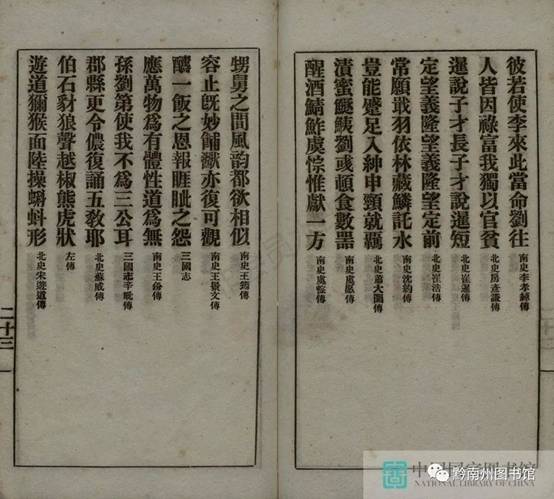 彼若使李來此當命劉往 南史李孝綽傳
人皆因祿富我獨以官貧 北史房彥謙傳
暹說子才長子才說暹短 北史崔暹傳
定望義隆望義隆望定前 北史崔浩傳
常願戢羽依林藏鱗託水 南史沈約傳
豈能蹙足入紳申頸就羈 北史蕭大圜傳
漬蜜鱁鮧劉彧頓食數器 南史虞愿傳
醒酒鯖鮓虞悰惟獻一方 南史虞悰傳
甥舅之間風韵都欲相似 南史王筠傳
容止既妙餔歠亦復可觀 南史王景文傳
醻一飯之恩報睚眦之怨 三國志
應萬物爲有體性道爲無 南史王份傳
孫劉第使我不爲三公耳 三國志辛毗傳
郡縣更令儂復誦五敎耶 北史蘇威傳
伯石豺狼聲越椒熊虎狀 左傳
遊道獼猴面陸操蝌蚪形 北史宋遊道傳
二十三
黔南州图书馆
NATIONAL LIBRARY OF CHINA